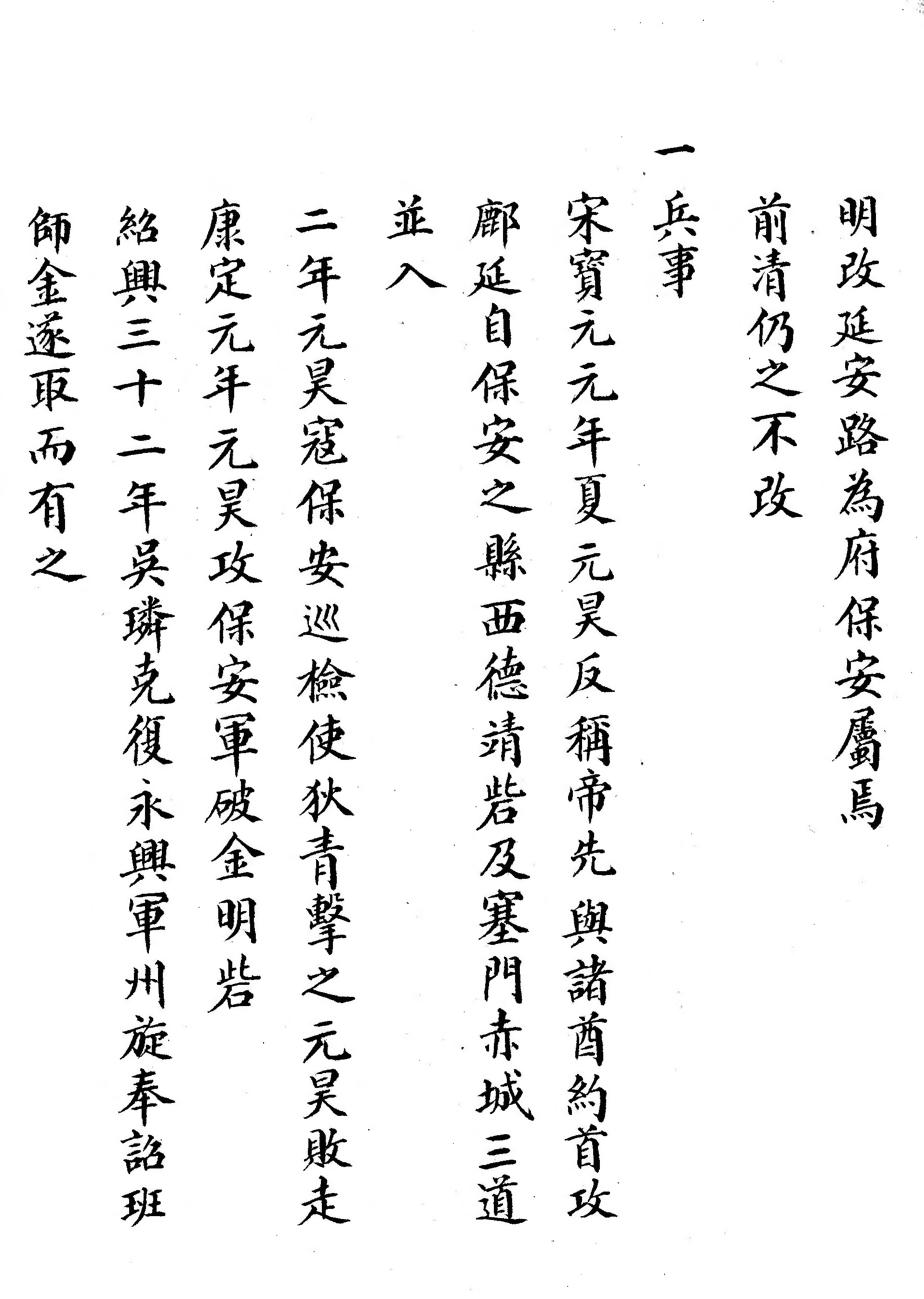 明改延安路為府保安屬焉
前清仍之不改
一兵事
宋寶元元年夏元昊反稱帝先與諸酋約首攻
鄜延自保安之縣西德靖砦及塞門赤城三道
並入
二年元昊寇保安巡檢使狄青擊之元昊敗走
康定元年元昊攻保安軍破金明砦
紹興三十二年吳璘克復永興軍州旋奉詔班
師金遂取而有之